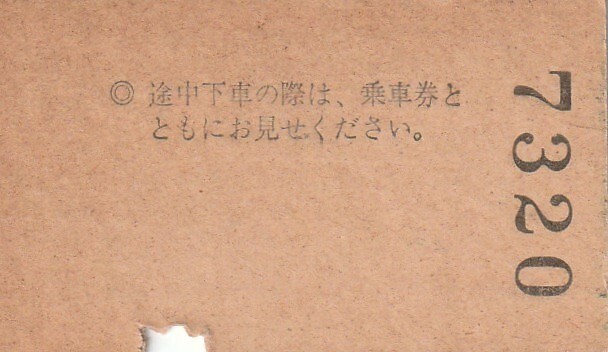 ◎ 途中下車の際は、乗車券と
ともにお見せください。
7320